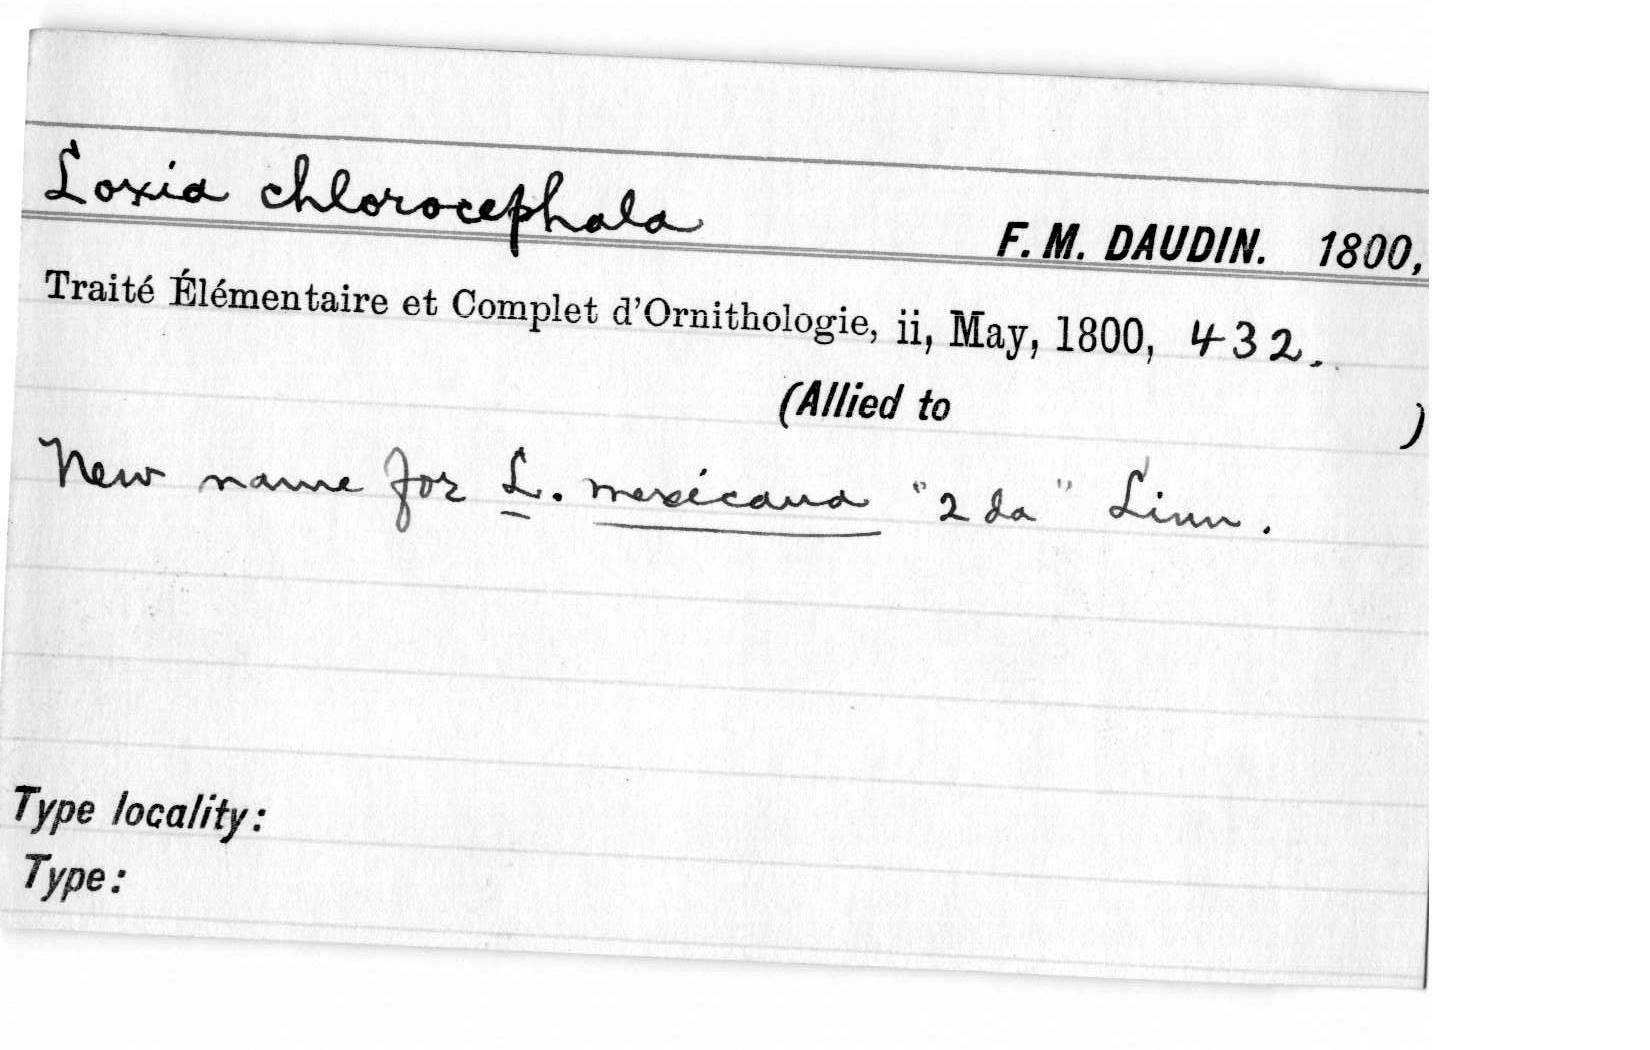 Loxia chlorocephala F. M. DAUDIN. 1800,
Traité Élémentaire et Complet d'Ornithologie, ii, May, 1800, 432.
(Allied to )
New name for L. mexicana "2da" Linn.
Type locality:
Type: